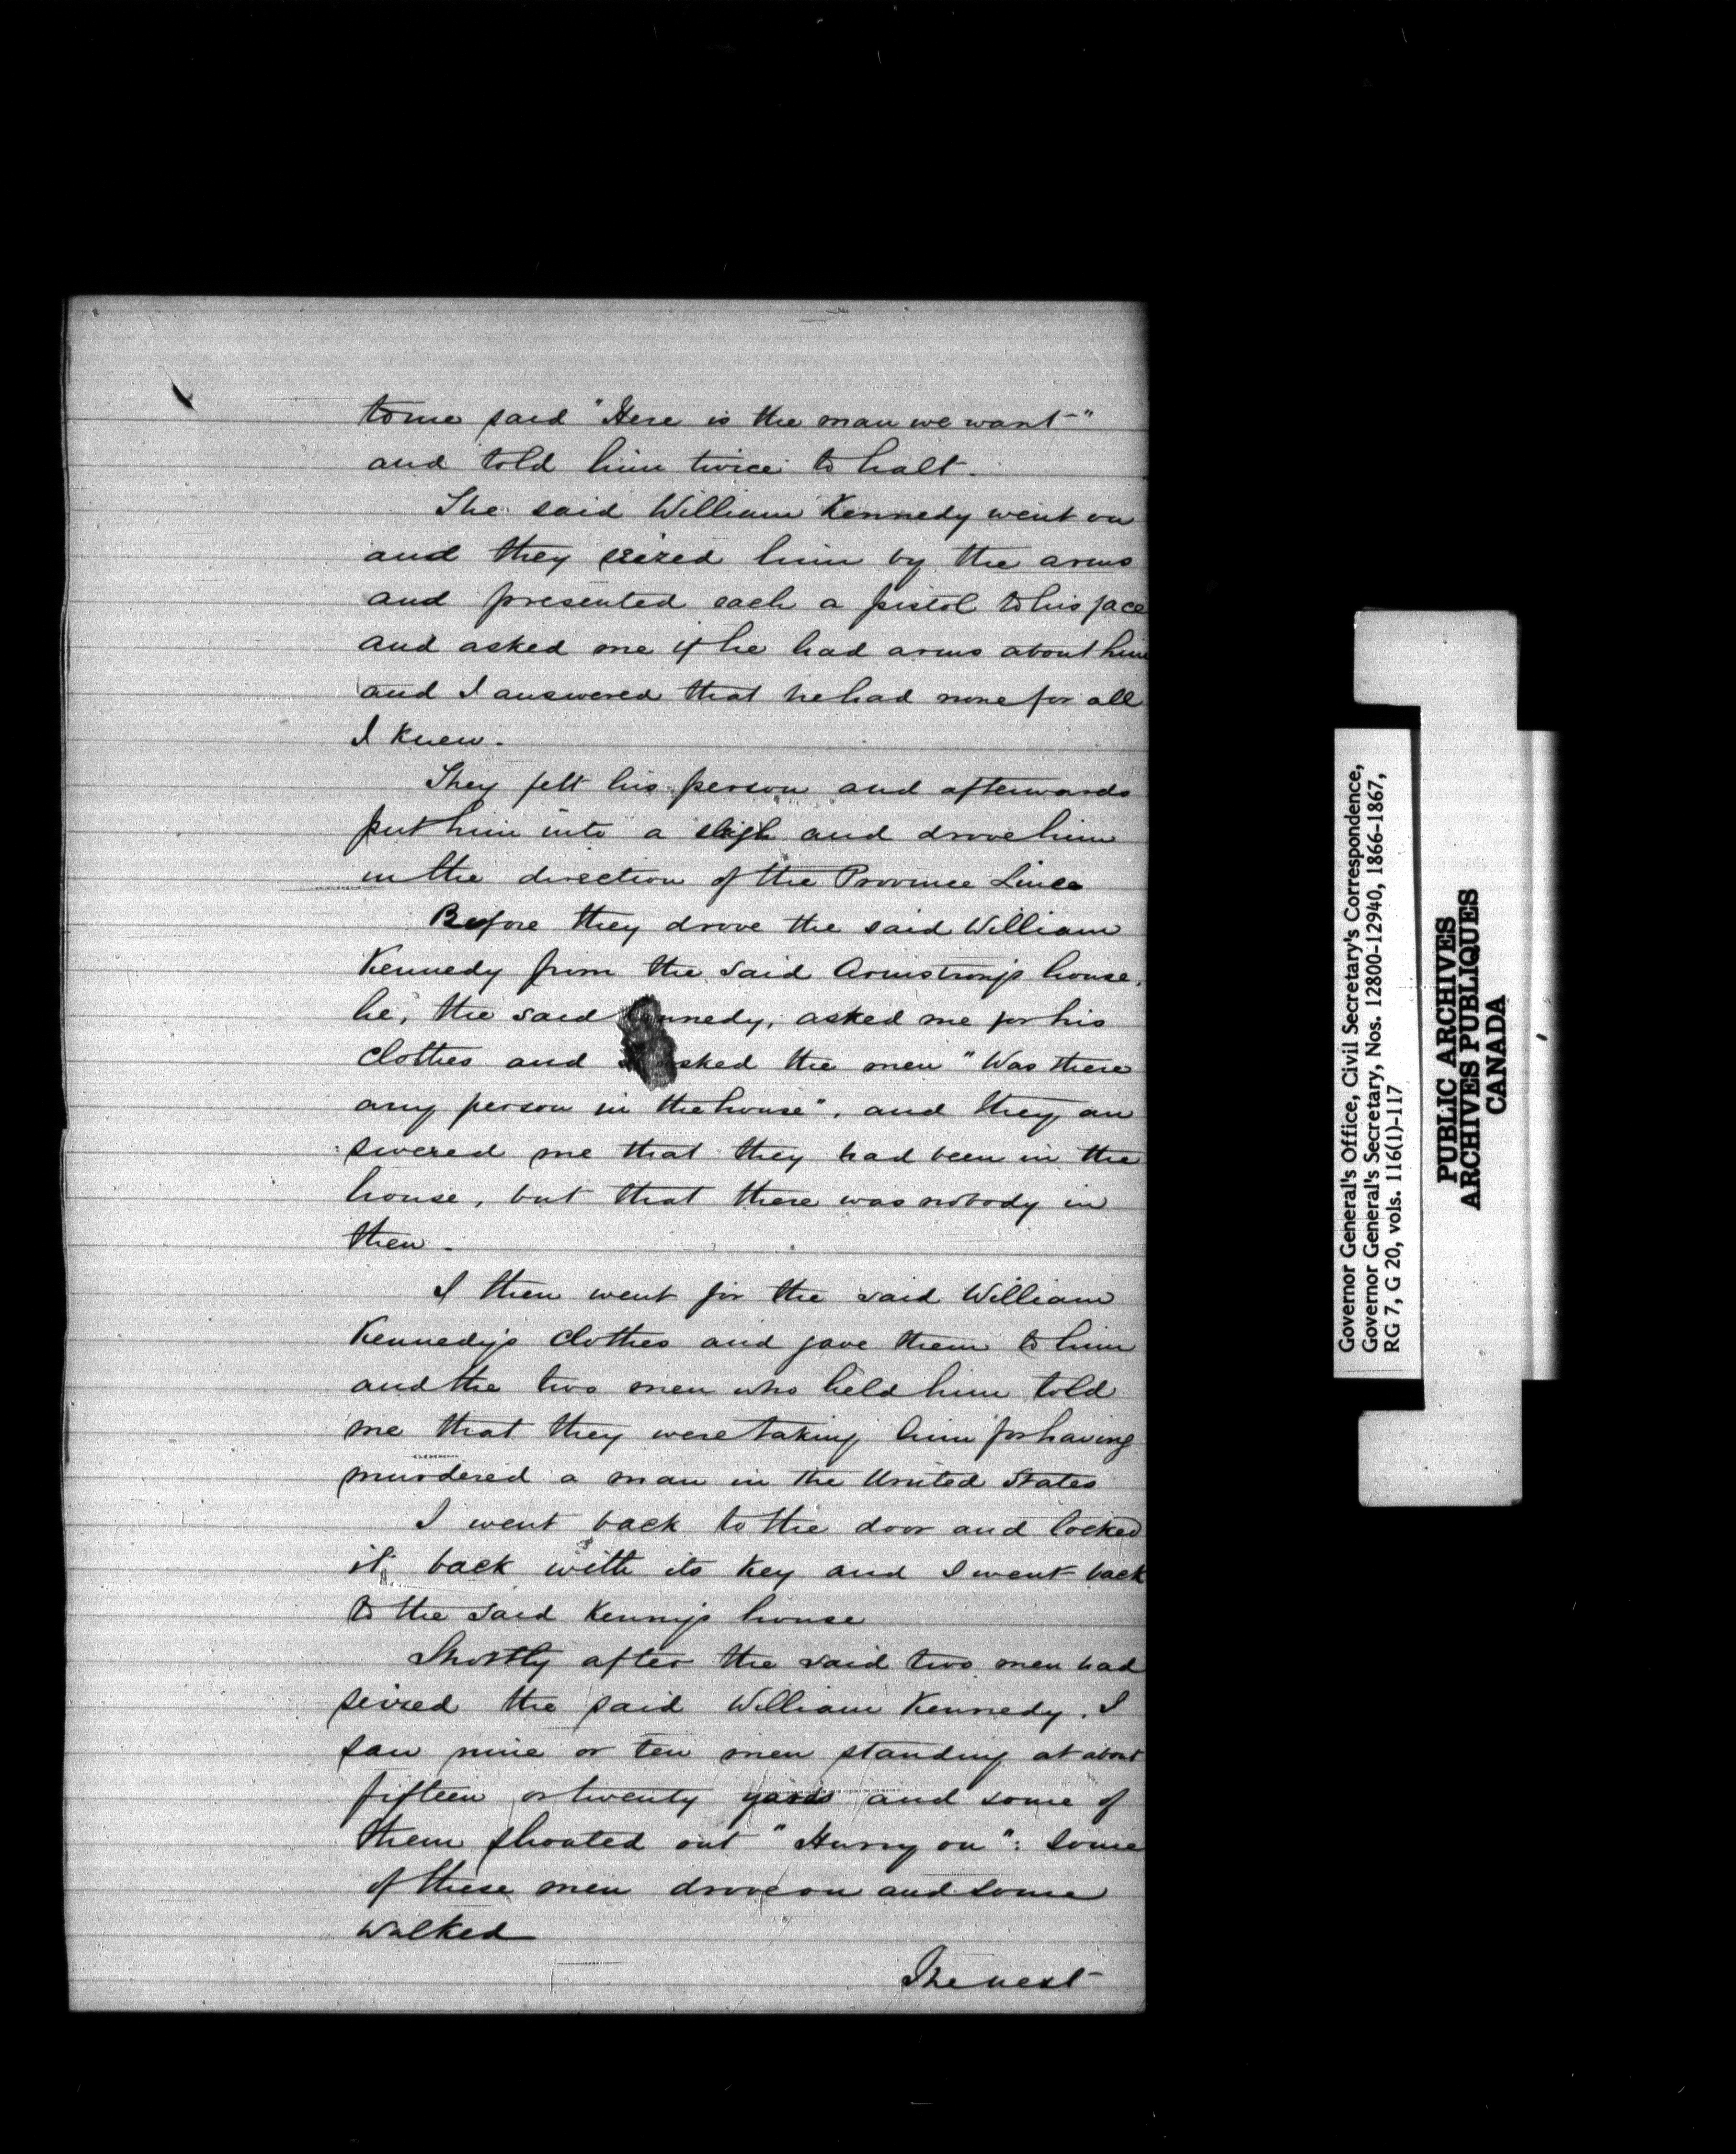 to me said "Here is the man we want"
and told him twice to halt.
The said William Kennedy went on
and they seized him by the arms
and presented each a pistol to his face
and asked me if he had arms about him
and I answered that he had none for all
I knew.
They felt his person and afterwards
put him into a sleigh and drove him
in the direction of the Province Lines
Before they drove the said William
Kennedy from the said Armstrong's house,
he, the said Kennedy, asked me for his
clothes and asked the men "Was there
any person in the house", and they an
swered me that they had been in the
house, but that there was nobody in
then.
I then went for the said William
Kennedy's clothes and gave them to him
and the two men who held him told
me that they were taking him for having
murdered a man in the United States
I went back to the door and locked
it back with its key and I went back
to the said Kenny's house
Shortly after the said two men had
seized the said William Kennedy. I
saw nine or ten men standing at about
fifteen or twenty yards and some of
them shouted out "Hurry on": some
of these men drove on and some
walked
The next
Governor General's Office, Civil Secretary's Correspondence,
Governor General's Secretary, Nos. 12800-12940, 1866-1867,
RG 7, G 20, vols. 116(1)-117
PUBLIC ARCHIVES
ARCHIVES PUBLIQUES
CANADA